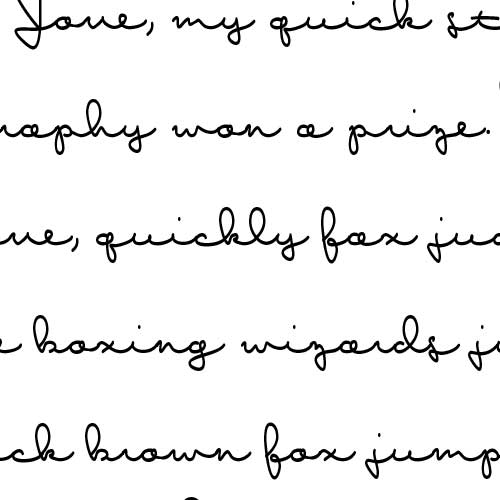 Jove, my quick st
raphy won a prize.
ve, quickly fax jud
e boxing wizards ju
ck brown fox jump